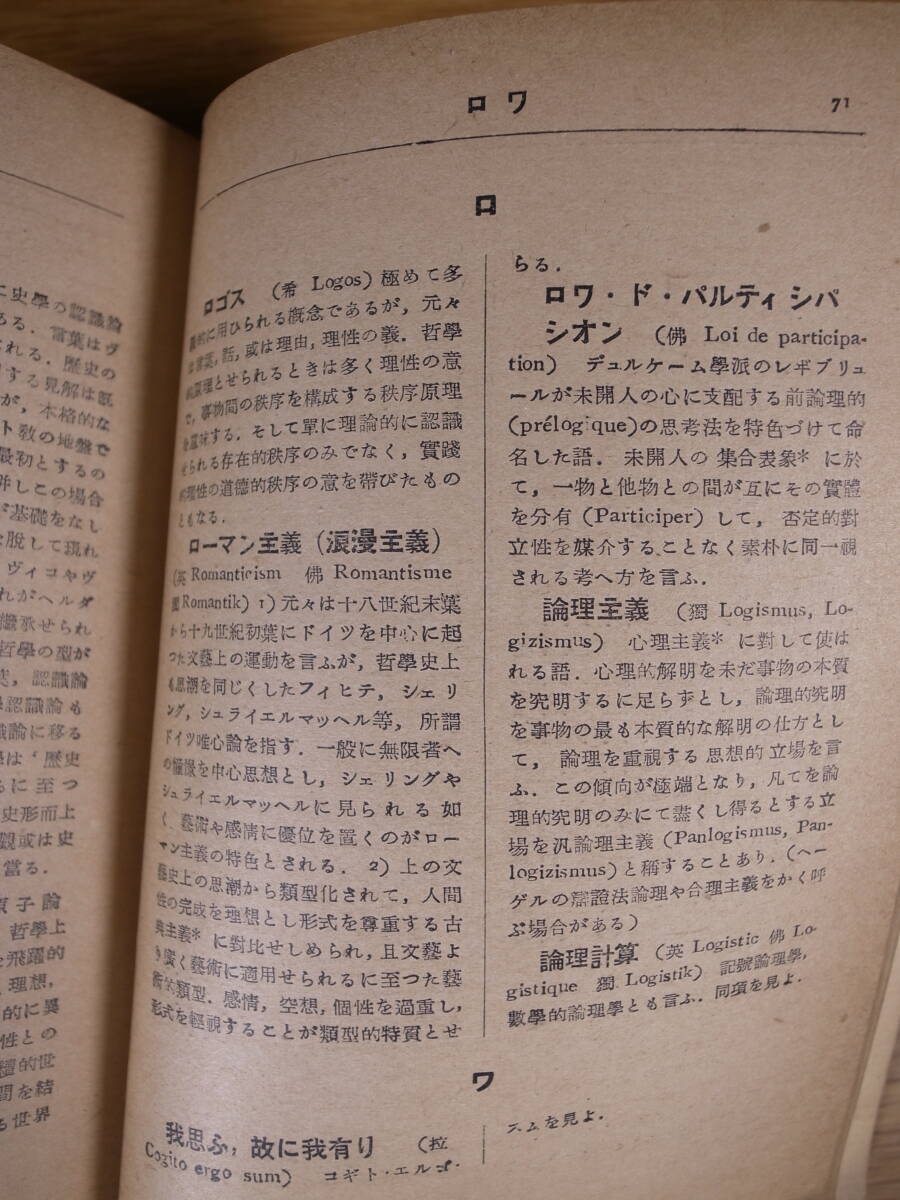 ロワ
71
ロ
ロゴス (希 Logos) 極めて多
義的に用ひられる概念であるが，元々
は言葉，話，或は理由，理性の義．哲學
的原理とせられるときは多く理性の意
で，事物間の秩序を構成する秩序原理
を意味する．そして單に理論的に認識
せられる存在的秩序のみでなく，實踐
的理性の道德的秩序の意を帶びたもの
ともなる．
ローマン主義（浪漫主義）
(英 Romanticism 佛 Romantisme
獨 Romantik) 1) 元々は十八世紀末葉
から十九世紀初葉にドイツを中心に起
つた文藝上の運動を言ふが，哲學史上
も思潮を同じくしたフィヒテ，シェリ
ング，シュライエルマッヘル等，所謂
ドイツ唯心論を指す．一般に無限者へ
の憧憬を中心思想とし，シェリングや
シュライエルマッヘルに見られる如
く，藝術や感情に優位を置くのがロー
マン主義の特色とされる．2) 上の文
藝史上の思潮から類型化されて，人間
性の完成を理想とし形式を尊重する古
典主義* に對比せしめられ，且文藝よ
り廣く藝術に適用せられるに至つた藝
術的類型．感情，空想，個性を過重し，
形式を輕視することが類型的特質とせ
らる．
ロワ・ド・パルティシパ
シオン (佛 Loi de participa-
tion) デュルケーム學派のレギブリュ
ールが未開人の心に支配する前論理的
(prélogique)の思考法を特色づけて命
名した語．未開人の集合表象* に於
て，一物と他物との間が互にその實體
を分有 (Participer) して，否定的對
立性を媒介することなく素朴に同一視
される考へ方を言ふ．
論理主義 (獨 Logismus, Lo-
gizismus) 心理主義* に對して使は
れる語．心理的解明を未だ事物の本質
を究明するに足らずとし，論理的究明
を事物の最も本質的な解明の仕方とし
て，論理を重視する思想的立場を言
ふ．この傾向が極端となり，凡てを論
理的究明のみにて盡くし得るとする立
場を汎論理主義 (Panlogismus, Pan-
logizismus) と稱することあり．(ヘー
ゲルの辯證法論理や合理主義をかく呼
ぶ場合がある)
論理計算 (英 Logistic 佛 Lo-
gistique 獨 Logistik) 記號論理學，
數學的論理學とも言ふ．同項を見よ．
ワ
我思ふ，故に我有り (拉
Cogito ergo sum) コギト・エルゴ・
スムを見よ．